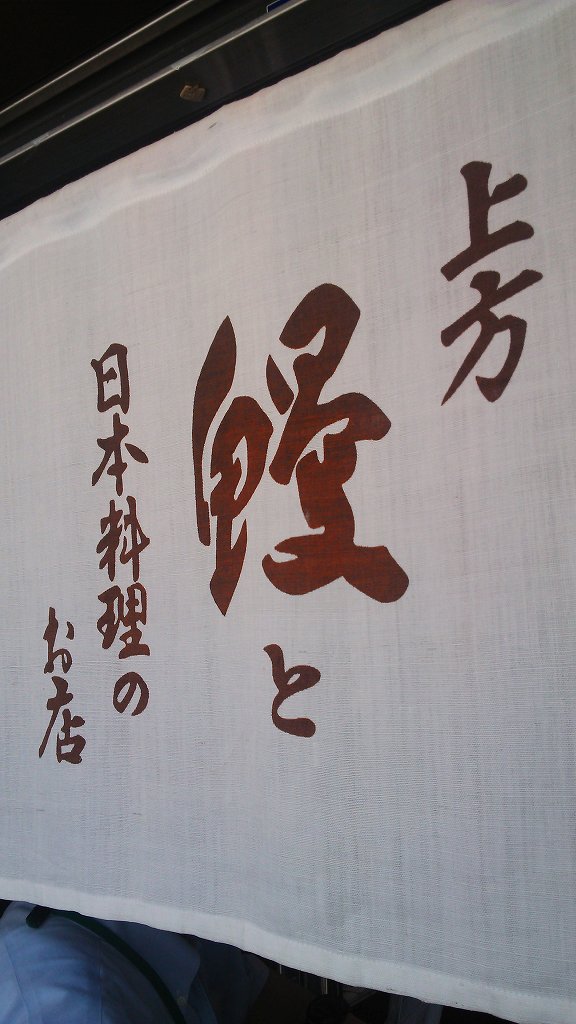 上方
鰻と
日本料理の
お店